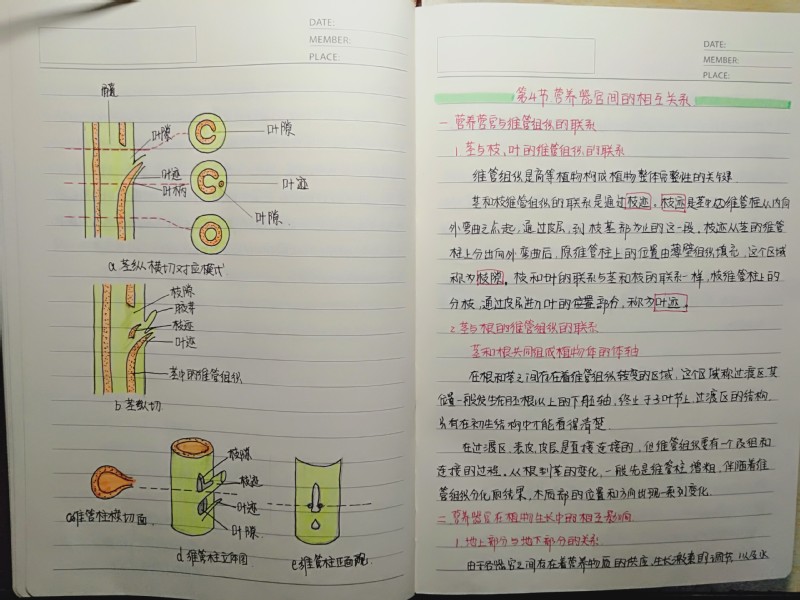 DATE:
MEMBER:
PLACE:
髓
叶隙
叶隙
叶迹
叶柄
叶迹
叶隙
a 茎纵横切对应模式
枝隙
腋芽
枝迹
叶迹
茎中的维管组织
b 茎纵切
枝隙
枝迹
叶迹
叶隙
c维管柱横切面
d 维管柱立体图
e维管柱正面观
DATE:
MEMBER:
PLACE:
第4节营养器官间的相互关系
一 营养器官与维管组织的联系
1 茎与枝、叶的维管组织的联系
维管组织是高等植物构成植物整体完整性的关键
茎和枝维管组织的联系是通过枝迹。枝迹是茎中的维管柱从内向
外弯曲之点起,通过皮层,到枝基部为止的这一段。枝迹从茎的维管
柱上分出向外弯曲后,原维管柱上的位置由薄壁组织填充,这个区域
称为枝隙。枝和叶的联系与茎和枝的联系一样,枝维管柱上的
分枝,通过皮层进入叶的位置部分,称为叶迹。
2 茎与根的维管组织的联系
茎和根共同组成植物体的体轴
在根和茎之间存在着维管组织转变的区域,这个区域称过渡区,其
位置一般发生在胚根以上的下胚轴,终止于子叶节上,过渡区的结构
只有在初生结构中才能看得清楚
在过渡区,表皮,皮层是直接连接的,但维管组织要有一个改组和
连接的过程。从根到茎的变化,一般先是维管柱增粗,伴随着维
管组织分化的结果,木质部的位置和方向出现一系列变化.
二 营养器官在植物生长中的相互影响
1 地上部分与地下部分的关系
由于各器官之间存在着营养物质的供应,生长激素的调节,以及水